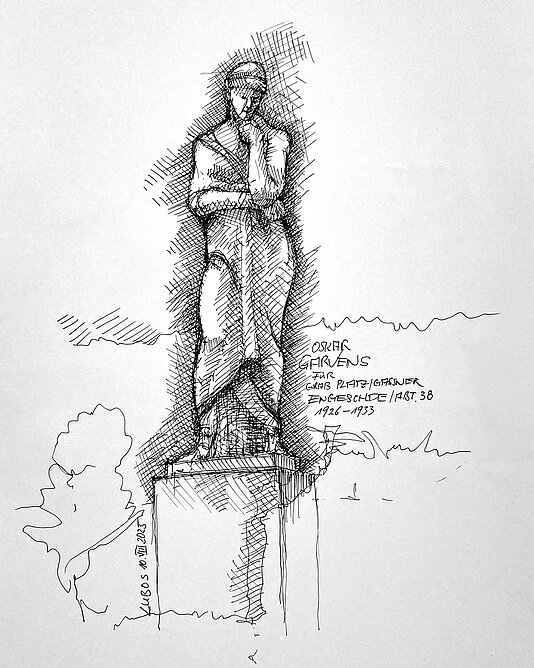 OSKAR
GARVENS
FÜR
GRAB PLATZ/GARNER
ENGESOHDE/ABT. 38
1926-1933
KUBOS 10.VIII.2025